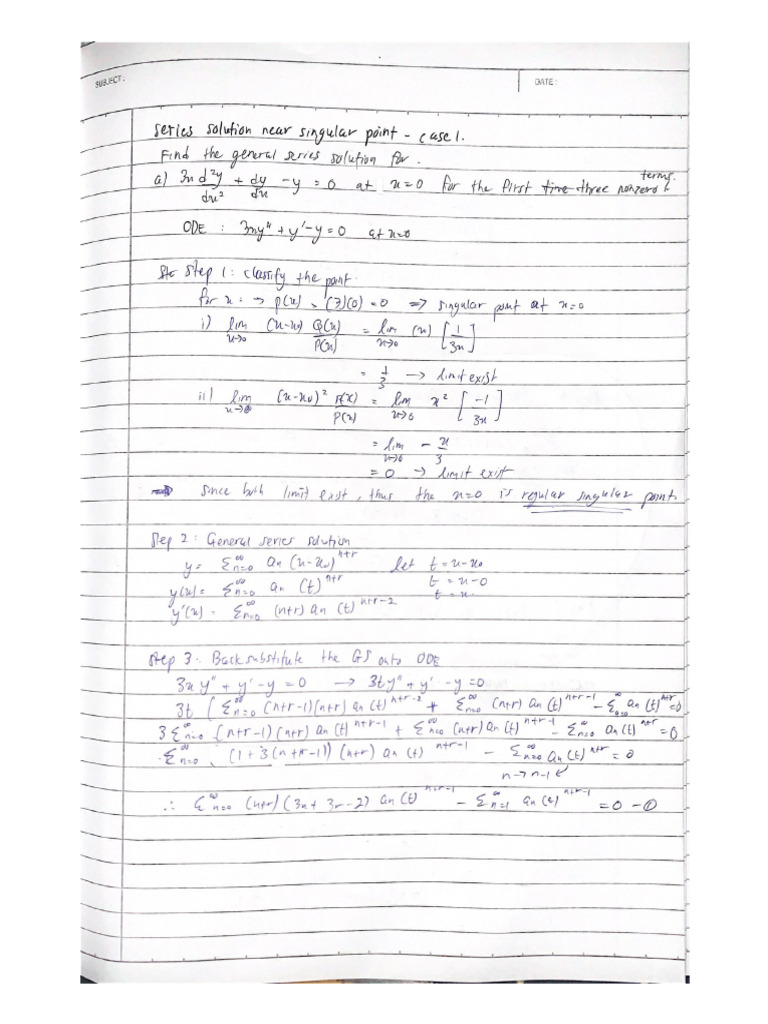 SUBJECT:
DATE:
series solution near singular point - case 1.
Find the general series solution for.
a) 3x d²y/dx² + dy/dx - y = 0 at x=0 for the first time three nonzero terms.
ODE : 3xy" + y' - y = 0 at x=0
Ste Step 1: classify the point.
for x: → P(x) = (3)(0) = 0 => singular point at x=0
i) lim x→0 (x-x₀) Q(x)/P(x) = lim x→0 (x) [1/3x]
= 1/3 → limit exist
ii) lim x→0 (x-x₀)² R(x)/P(x) = lim x→0 x² [-1/3x]
= lim x→0 - x/3
= 0 → limit exist
=> since both limit exist, thus the x=0 is regular singular point.
Step 2: General series solution
y = Σ∞n=0 an (x-x₀)^n+r let t = x-x₀
y(x) = Σ∞n=0 an (t)^n+r t = x-0
y'(x) = Σ∞n=0 (n+r) an (t)^n+r-2 t = x.
Step 3: Back substitute the GS onto ODE
3xy" + y' - y = 0 → 3ty" + y' - y = 0
3t (Σ∞n=0 (n+r-1)(n+r) an (t)^n+r-2 + Σ∞n=0 (n+r) an (t)^n+r-1 - Σ∞n=0 an (t)^n+r = 0
3Σ∞n=0 (n+r-1)(n+r) an (t)^n+r-1 + Σ∞n=0 (n+r) an (t)^n+r-1 - Σ∞n=0 an (t)^n+r = 0
Σ∞n=0 (1+3(n+r-1)) (n+r) an (t)^n+r-1 - Σ∞n=0 an (t)^n+r = 0
n→n-1
∴ Σ∞n=0 (n+r)(3n+3r-2) an (t)^n+r-1 - Σ∞n=1 an (t)^n+r-1 = 0 - ①